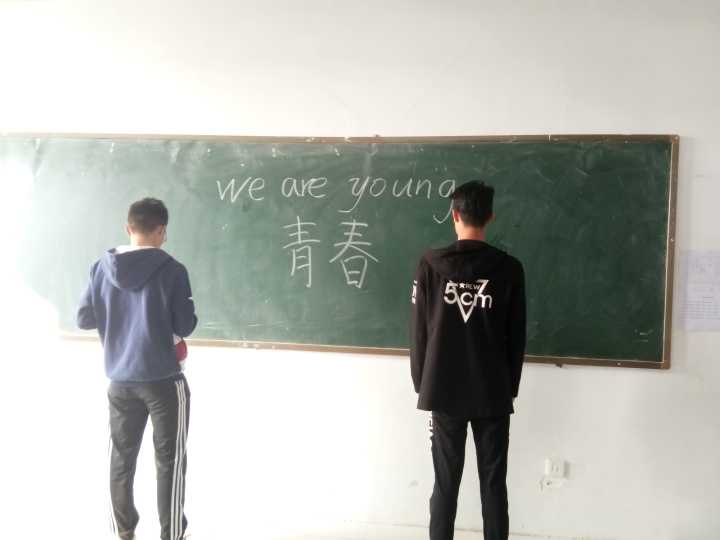 we are young
青春
REW
5cm